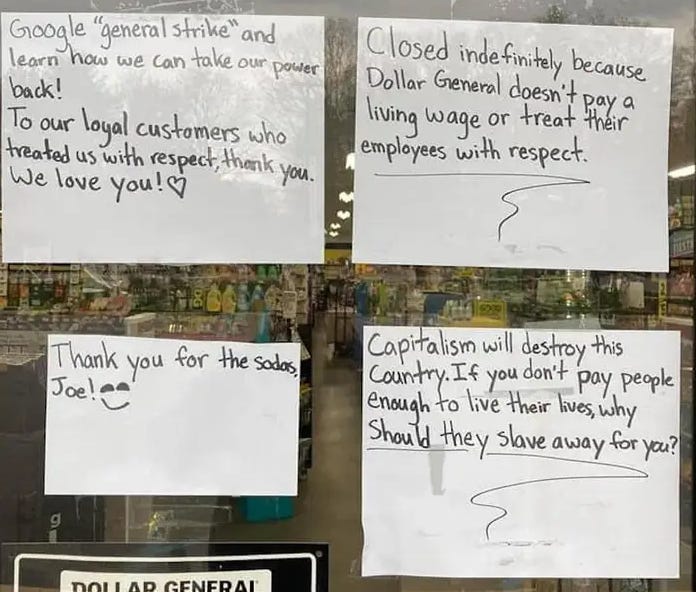 Google "general strike" and
learn how we can take our power
back!
To our loyal customers who
treated us with respect, thank you.
We love you!♡
Closed indefinitely because
Dollar General doesn't pay a
living wage or treat their
employees with respect.
Thank you for the sodas,
Joe!
Capitalism will destroy this
Country. If you don't pay people
enough to live their lives, why
should they slave away for you?
DOLLAR GENERAL